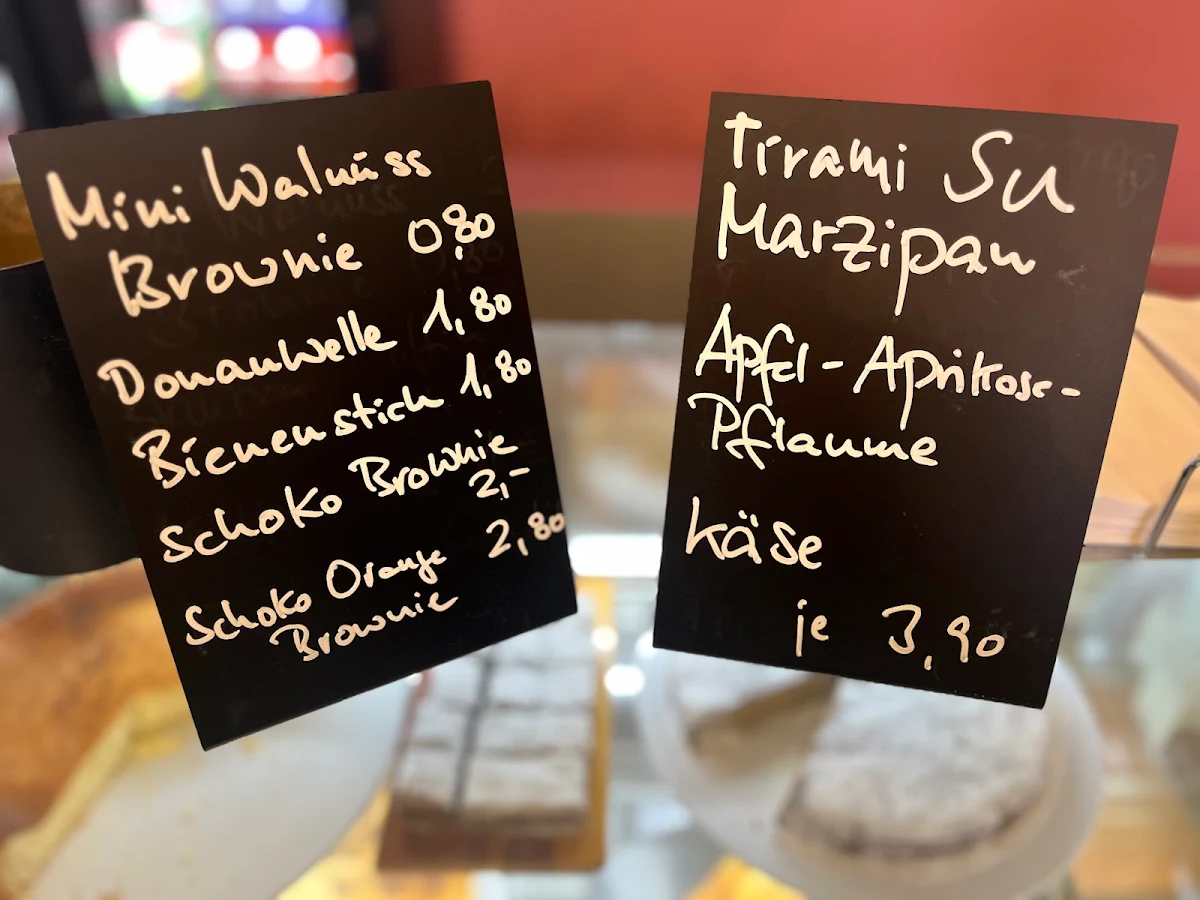 Mini Walnuss
Brownie 0,80
Donauwelle 1,80
Bienenstich 1,80
Schoko Brownie
2,-
Schoko Orange 2,80
Brownie
Tirami Su
Marzipan
Apfel-Aprikose-
Pflaume
Käse
je 3,90